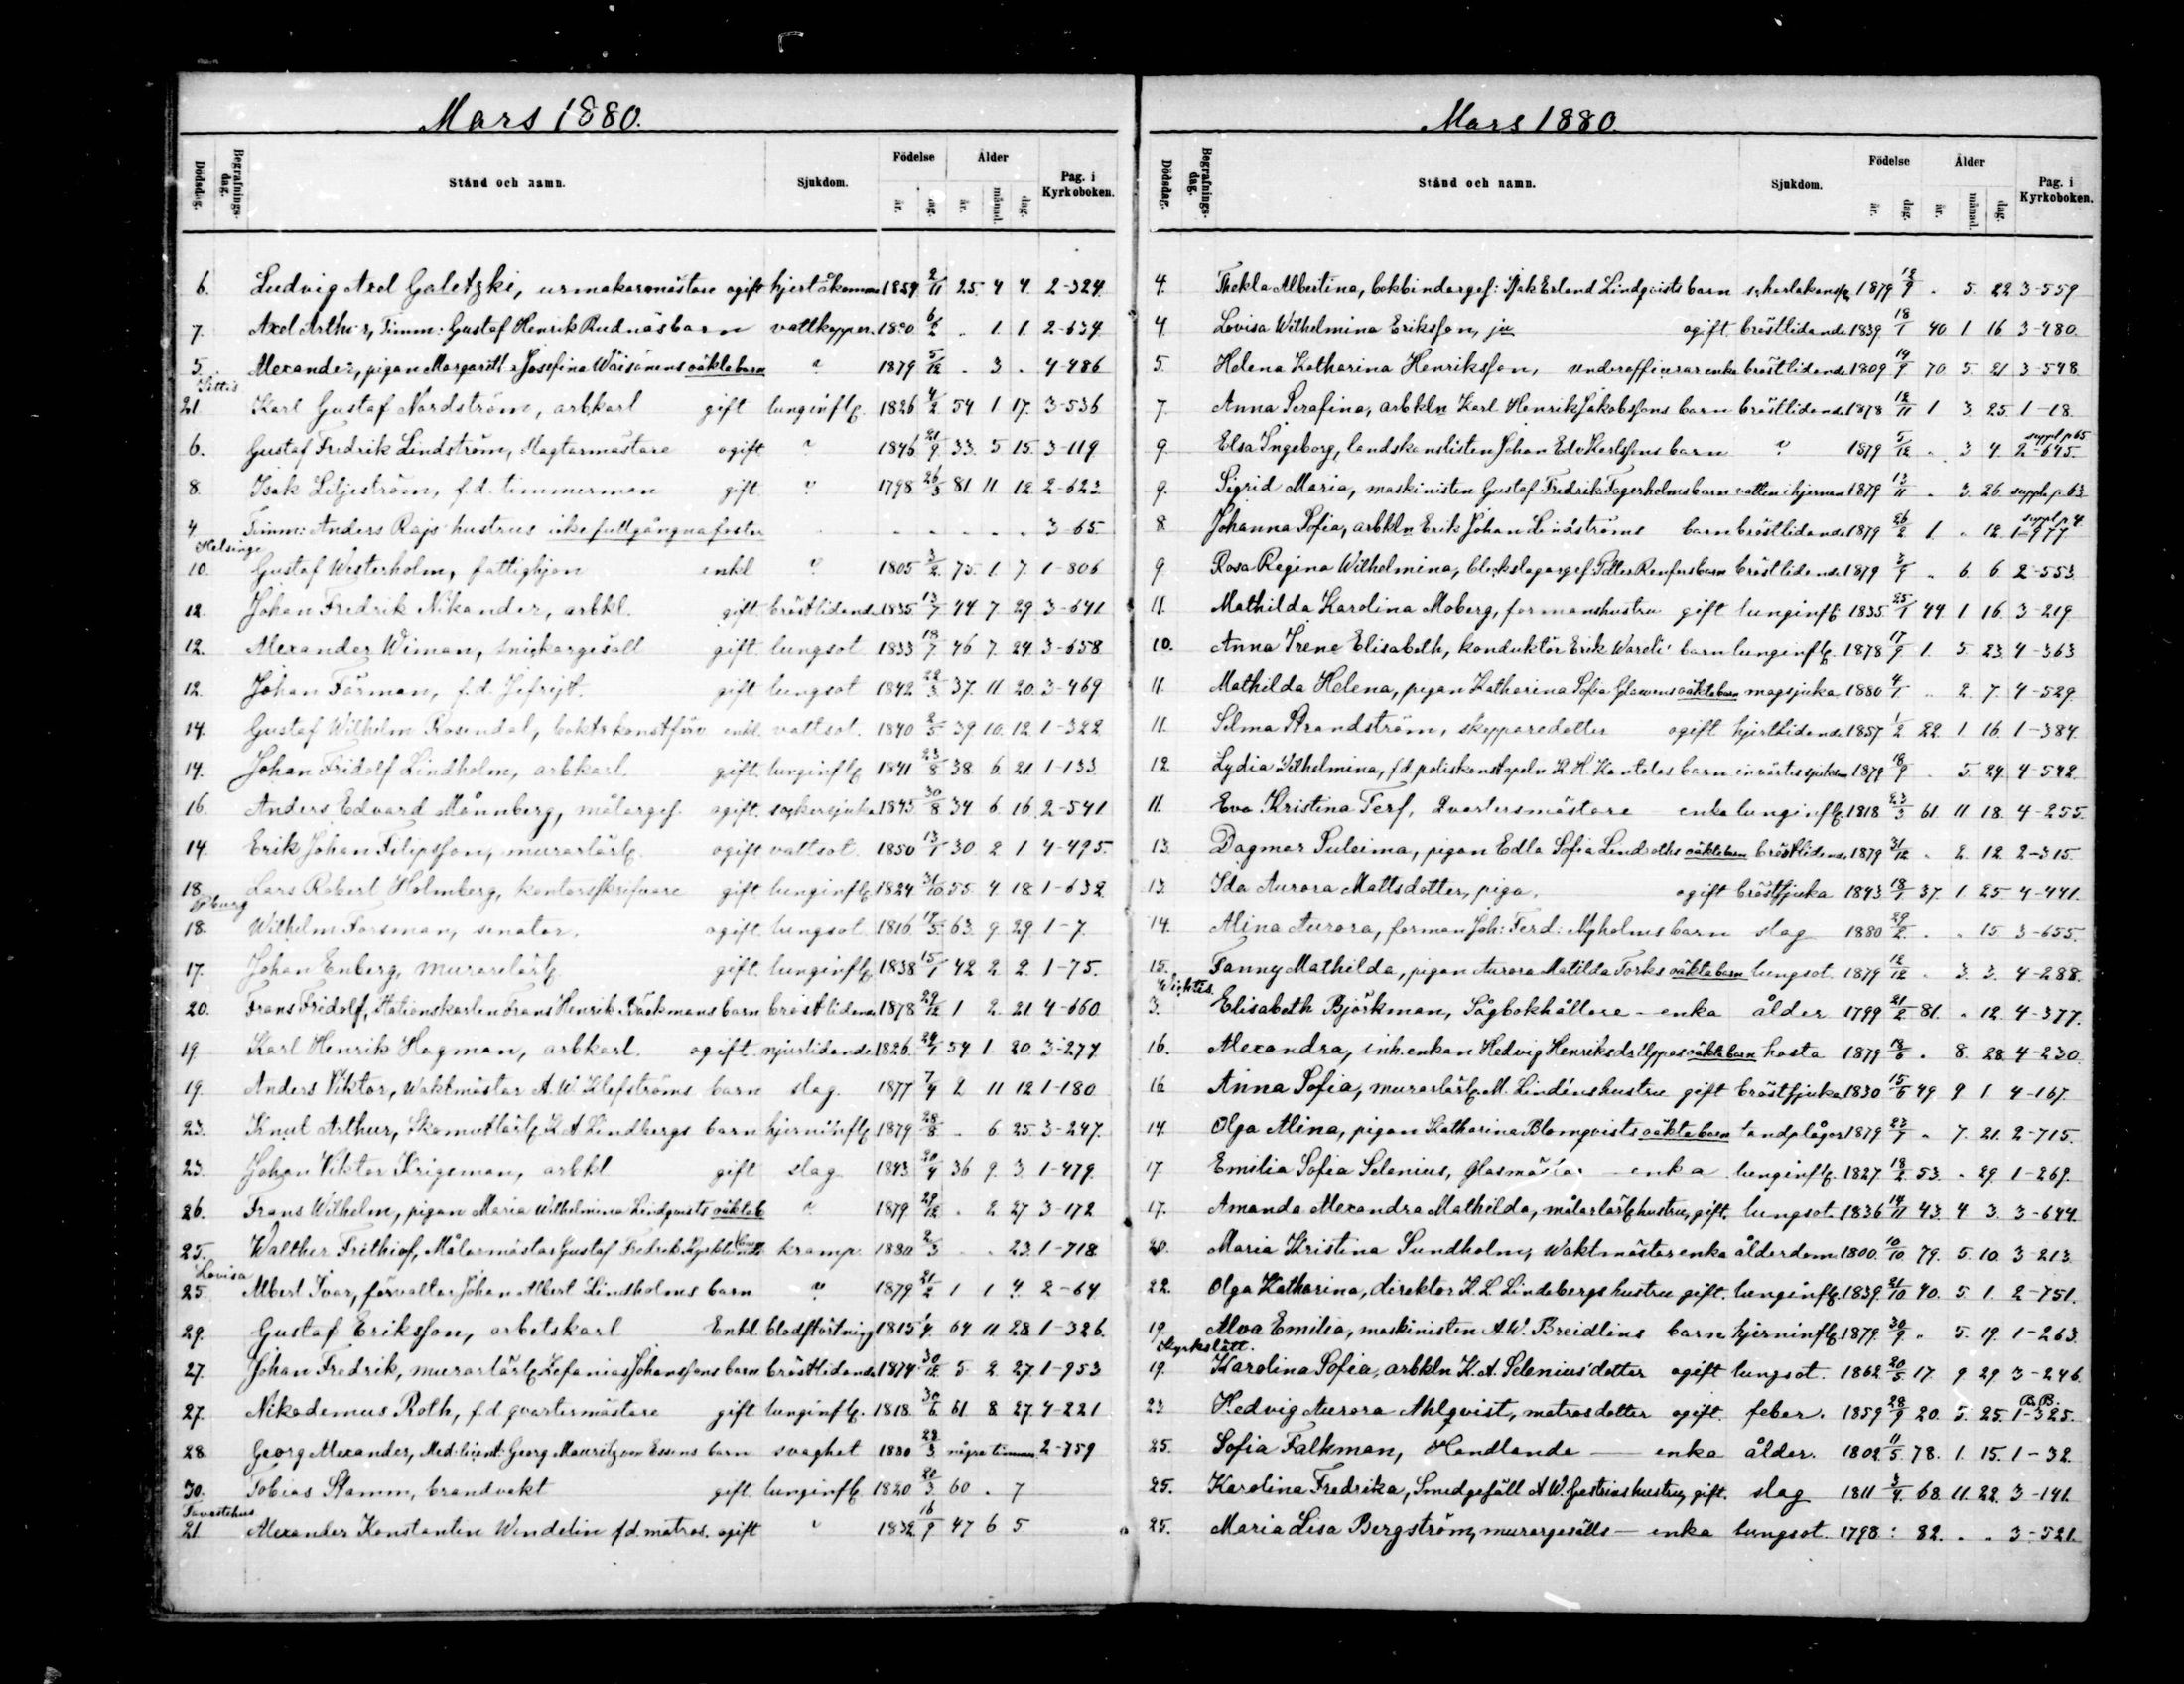 Mars 1880.
Dödsdag. Begrafningsdag. Stånd och namn. Sjukdom. Födelse år. dag. Ålder år. månad. dag. Pag. i Kyrkoboken.
6. Ludvig Axel Galetzki, urmakaremästare ogift hjertåkomma 1854 2/11 25. 4 4. 2-324.
7. Axel Arthur, Timm: Gustaf Henrik Rudnäs barn vattkoppor. 1880 6/2 . 1. 1. 2-634.
5. Alexander, pigan Margaretha Josefina Wäisänens oäkta barn " 1879 5/12 . 3 . 4-486
21. Karl Gustaf Nordström, arbkarl gift lunginflg. 1826 4/2 54 1 17. 3-536
6. Gustaf Fredrik Lindström, Slagtarmästare ogift " 1846 21/9 33. 5 15. 3-119.
8. Isak Liljeström, f.d. timmerman gift " 1798 26/3 81. 11 12. 2-623.
4 Timm: Anders Rajs hustrus icke fullgångna foster - - - - - - 3-65.
Helsinge
10. Gustaf Westerholm, fattighjon enkl " 1805 3/2 75. 1. 7. 1-806
12. Johan Fredrik Nikander, arbkl. gift. bröstlidande 1835 13/7 44 7 29. 3-641
12. Alexander Wiman, snickargesäll gift. lungsot 1833 18/7 46 7. 24. 3-658
12. Johan Färman, f.d. Jefrejt. gift lungsot 1842 22/3 37. 11 20. 3-469
14. Gustaf Wilhelm Rosendal, enkl. vattsot. 1840 2/5 39. 10. 12. 1-322
14. Johan Fridolf Lindholm, arbkarl gift. lunginflg 1841 23/8 38. 6 21 1-133
16. Anders Edvard Månnberg, målargef. ogift. sockersjuka 1845 30/8 34 6 16. 2-541
14. Erik Johan Filipsson, murarlärlg. ogift vattsot 1850 13/1 30 2 1 4-495.
18. Lars Robert Holmberg, kontorsskrifvare gift lunginflg. 1824 31/10 55. 4. 18. 1-632
18. Wilhelm Forsman, senator. ogift. lungsot 1816 19/5 63. 9 29. 1-7.
17. Johan Enberg, murarelärlg gift. lunginflg. 1838 15/1 42 2. 2. 1-75.
20. Frans Fridolf, Stationskarlen Frans Henrik Bäckmans barn bröstlidande 1878 29/12 1 2. 21 4-660
19 Karl Henrik Hagman, arbkarl. ogift. njurlidande 1826. 29/1 54 1. 20. 3-277
19. Anders Viktor, Waktmästar A. W. Klefströms barn slag. 1877 7/4 2 11 12 1-180
23. Knut Arthur, K A Lindbergs barn hjerninflg 1879 28/8 . 6. 25. 3-247.
23. Johan Viktor Krigsman, arbkl gift slag 1843 20/4 36 9. 3. 1-479.
26. Frans Wilhelm, pigan Maria Wilhelmina Lindqvists oäkta b " 1879. 29/12 . 2. 27 3-172
25. Walther Frithiof, Målarmästar Gustaf Fredrik barn kramp. 1880 2/3 . . 23. 1-718
Lovisa
25. Albert Ivar, förvaltar Johan Albert Lindholms barn " 1879 21/2 1 1 4. 2-64
29. Gustaf Eriksson, arbetskarl Enkl. blodstörtning 1815 1/4. 64 11 28. 1-326.
27. Johan Fredrik, murarlärlg Zefanias Johanssons barn bröstlidande 1874 30/12 5. 2. 27. 1-953
27. Nikodemus Roth, f.d. qvartermästare gift lunginflg. 1818. 30/6 61 8. 27. 4-221
28. Georg Alexander, Med. licent. Georg Mauritz von Essens barn svaghet 1880 28/3 några timmar. 2-759
30. Tobias Stamm, brandvakt gift. lunginflg 1820 20/3 60 . 7
Tavastehus
21. Alexander Konstantin Wendelin f.d. matros. ogift " 1832. 16/9 47 6 5
Mars 1880.
Dödsdag. Begrafningsdag. Stånd och namn. Sjukdom. Födelse år. dag. Ålder år. månad. dag. Pag. i Kyrkoboken.
4. Thekla Albertina, bokbindargef: Isak Erland Lindqvists barn 1879 12/9 . 5. 22 3-559
4. Lovisa Wilhelmina Eriksson, ogift bröstlidande 1839. 18/1 40 1 16 3-480.
5. Helena Katharina Henriksson, underofficerar enka bröstlidande 1809 14/9 70 5. 21 3-548
7. Anna Serafina, arbkln Karl Henrik Jakobssons barn bröstlidande 1878 12/11 1 3. 25. 1-18.
9. Elsa Ingeborg, landskanslisten Johan Edv Karlssons barn " 1879 5/12 . 3 4. suppl p 65 2-645.
9. Sigrid Maria, maskinisten Gustaf Fredrik Fagerholms barn vatten i hjernan 1879 13/11 . 3. 26. suppl. p 63
8 Johanna Sofia, arbkln Erik Johan Lindströms barn bröstlidande 1879 26/2 1. . 12. suppl p 4. 1-977
9. Rosa Regina Wilhelmina, bleckslagargef. barn bröstlidande 1879 3/9 . 6. 6. 2-553.
11. Mathilda Karolina Moberg, formanshustru gift lunginfl: 1835 25/1 44. 1 16. 3-219.
10. Anna Irene Elisabeth, konduktör Erik barn lunginflg. 1878 17/9 1. 5. 23. 4-363
11. Mathilda Helena, pigan Katharina Sofia oäkta barn magsjuka 1880 4/1 . 2. 7. 4-529.
11. Selma Strandström, skepparedotter ogift hjertlidande 1857 1/2 22. 1 16. 1-384.
12. Lydia Wilhelmina, f.d poliskonstapeln K. H. Kantolas barn invärtes sjukdom 1879 18/9 . 5. 24 4-542.
11. Eva Kristina Terf, Qvartersmästare enka lunginflg. 1818 23/3 61. 11 18. 4-255.
13. Dagmar Suleima, pigan Edla Sofia Lindroths oäkta barn bröstlidande 1879 31/12 . 2. 12. 2-315.
13. Ida Aurora Mattsdotter, piga, ogift bröstsjuka 1843 18/1 37. 1. 25 4-441.
14. Alina Aurora, forman Joh: Ferd: Nyholms barn slag 1880 29/2 . . 15. 3-655.
15. Fanny Mathilda, pigan Aurora Matilda Torks oäkta barn lungsot. 1879 12/12 . 3. 3. 4-288.
Wichtis.
3. Elisabeth Björkman, Sågbokhållare - enka ålder 1799 21/2 81. . 12. 4-377.
16. Alexandra, inh. enkan Hedvig Henriksdr Uppas oäkta barn hosta 1879 18/6 . 8. 28 4-230.
16 Anna Sofia, murarlärlg. M. Lindéns hustru gift bröstsjuka 1830 15/6 49 9 1. 4-167.
14. Olga Alina, pigan Katharina Blomqvists oäkta barn tandplågor 1879 23/7 . 7. 21. 2-715.
17. Emilia Sofia Selenius, Glasmästar - enka lunginflg. 1827 18/2 53. . 29. 1-269.
17. Amanda Alexandra Mathilda, målarlärlg hustru, gift. lungsot. 1836 14/11 43. 4 3. 3-644.
20. Maria Kristina Sundholm, Waktmästar enka ålderdom 1800. 10/10 79. 5. 10. 3-213.
22. Olga Katharina, direktor K. L. Lindebergs hustru gift. lunginflg. 1839. 21/10 40. 5. 1. 2-751.
19. Alva Emilia, maskinisten A. W. Breidlins barn hjerninflg 1879. 30/9 . 5. 19. 1-263.
Kyrkslätt.
19. Karolina Sofia, arbkln K. A. Selenius' dotter ogift lungsot. 1862. 20/5 17. 9. 29. 3-246.
23. Hedvig Aurora Ahlqvist, matrosdotter ogift. feber. 1859 28/9 20. 5. 25. B.B. 1-325.
25. Sofia Falkman, Handlande - enka ålder. 1802 11/5. 78. 1. 15. 1-32.
25. Karolina Fredrika, Smedgesäll A W. hustru, gift. slag 1811 3/4. 68 11. 22. 3-141.
25. Maria Lisa Bergström, murargesälls - enka lungsot. 1798 : 82. . . 3-521.